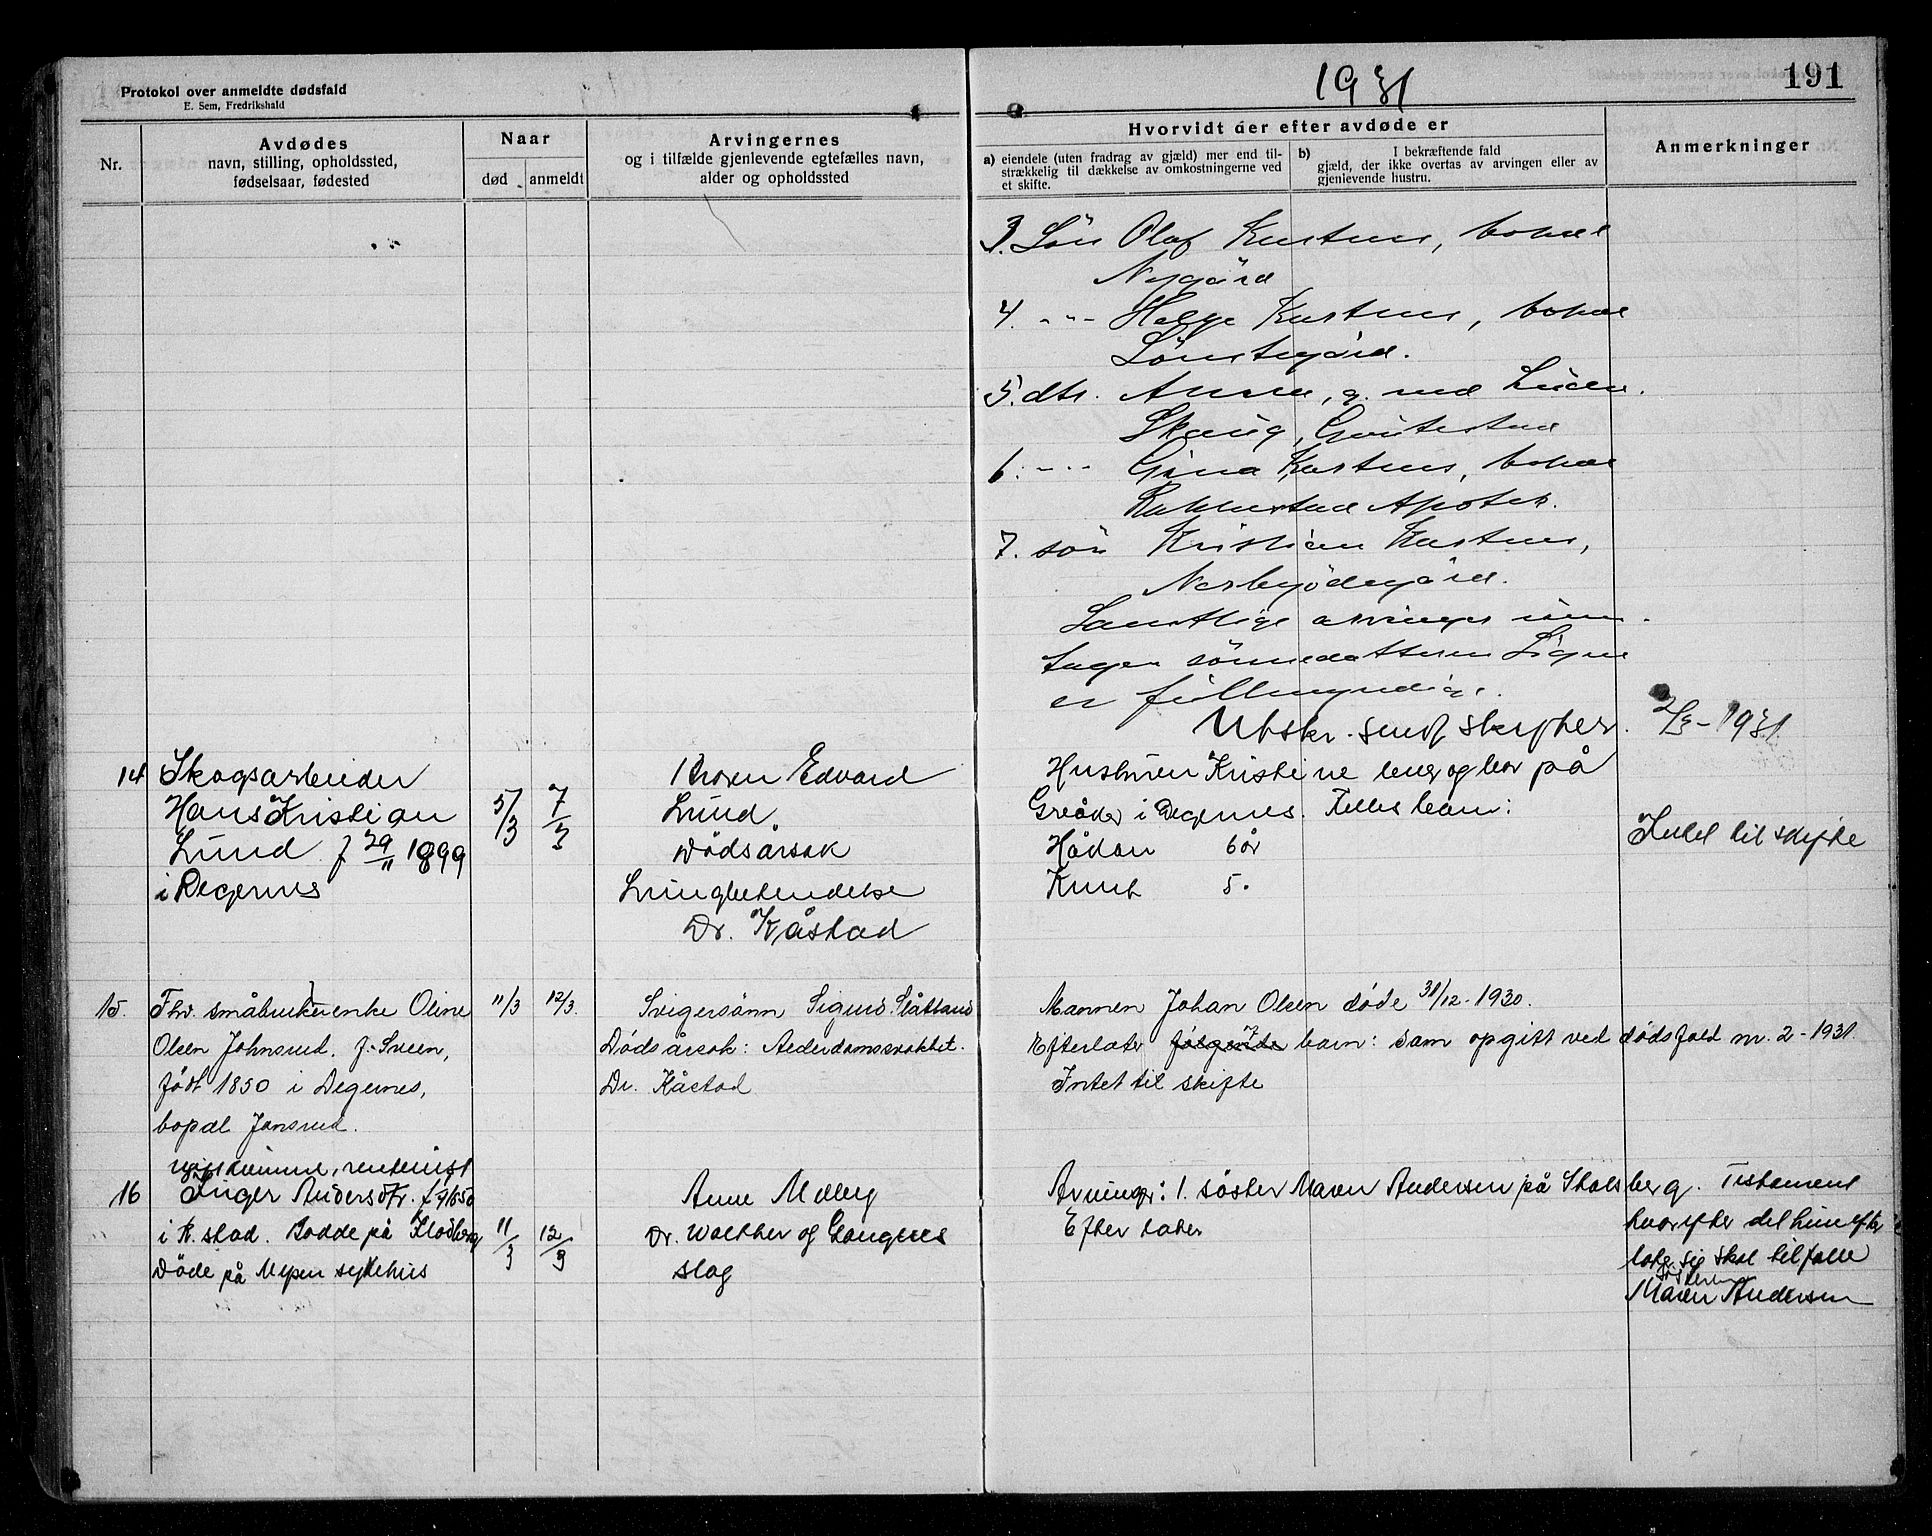 Protokol over anmeldte dødsfald
E. Sem, Fredrikshald
1931
191
Nr.
Avdødes
navn, stilling, opholdssted,
fødselsaar, fødested
Naar
død
anmeldt
Arvingernes
og i tilfælde gjenlevende egtefælles navn,
alder og opholdssted
Hvorvidt der efter avdøde er
a) eiendele (uten fradrag av gjæld) mer end til-
strækkelig til dækkelse av omkostningerne ved
et skifte.
b) I bekræftende fald
gjæld, der ikke overtas av arvingen eller av
gjenlevende hustru.
Anmerkninger
3. Sön Olaf Kastnes, bopæl
Nygård
4. -"- Helge Kastnes, bopæl
5. dtr. Anna, g. med
Skaug,
6. -"- Gina Kastnes, bopæl
Rakkestad Apotek.
7. sön Kristian Kastnes,
Nerbyödegård.
Samtlige arvinger unn-
tagen sönnedatteren Signe
er fullmyndige.
Utskr. sendt skifter. 2/3-1931
14 Skogsarbeider
Hans Kristian
Lund f 29/11 1899
i Degernes
5/3
7/3
Broren Edvard
Lund
Dødsårsak
Lungbetendelse
Dr. Kåstad
Hustruen Kristine lever og bor på
Gråder i Degernes. Felles barn:
Håkon 6 år
Knut 5 "
Intet til skifte
15. Fhv. småbrukerenke Oline
Olsen Johnsrud. f. Sveen,
født 1850 i Degernes,
bopæl Jonsrud.
11/3
12/3.
Svigersønn Sigurd Slåttland
Dødsårsak: Alderdomssvakhet.
Dr. Kåstad
Mannen Johan Olsen døde 31/12-1930.
Efterlater følgende 7 barn: som opgitt ved dødsfald nr. 2-1931.
Intet til skifte
16
ugift kvinne, rentenist
Inger Andersdtr. f.
i R.stad. Bodde på
Døde på Mysen sykehus
11/3
12/3
Anne Moberg
Dr. Walther og
slag
Arvinger: 1. søster Maren Andersen på
Efterlater
Testament
hvorefter det hun efter
later sig skal tilfalle
søsteren
Maren Andersen